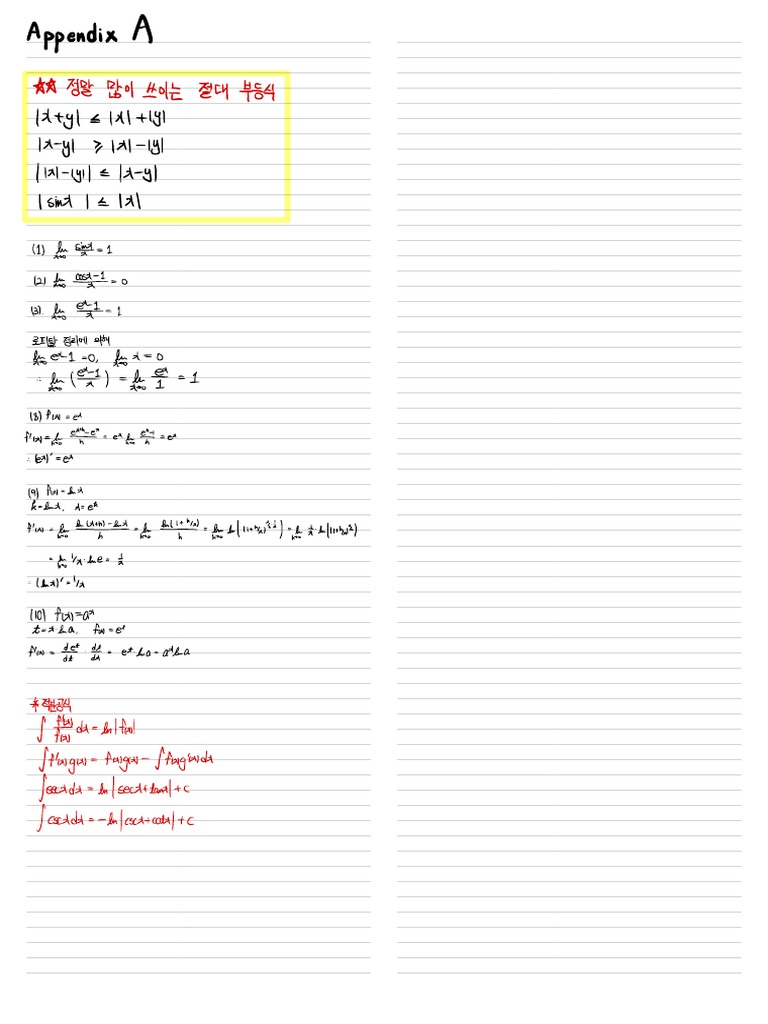 Appendix A
☆☆ 정말 많이 쓰이는 절대 부등식
|x+y| ≤ |x|+|y|
|x-y| ≥ |x|-|y|
||x|-|y|| ≤ |x-y|
|sinx| ≤ |x|
(1) lim x→0 sinx/x = 1
(2) lim x→0 (cosx-1)/x = 0
(3). lim x→0 (e^x-1)/x = 1
로피탈 정리에 의해
lim x→0 e^x-1 = 0, lim x→0 x = 0
∴ lim x→0 ((e^x-1)/x) = lim x→0 e^x/1 = 1
(8) f(x) = e^x
f'(x) = lim h→0 (e^(x+h)-e^x)/h = e^x lim h→0 (e^h-1)/h = e^x
∴ (e^x)' = e^x
(9) f(x) = ln x
k = ln x, x = e^k
f'(x) = lim h→0 (ln(x+h)-ln x)/h = lim h→0 ln(1+h/x)/h = lim h→0 ln(1+h/x)^(x/h · 1/x) = lim h→0 1/x · ln(1+h/x)^(x/h)
= lim h→0 1/x · ln e = 1/x
∴ (ln x)' = 1/x
(10) f(x) = a^x
t = x·ln a, f(x) = e^t
f'(x) = de^t/dt · dt/dx = e^t · ln a = a^x ln a
* 적분공식
∫ f'(x)/f(x) dx = ln|f(x)|
∫ f'(x)g(x) = f(x)g(x) - ∫ f(x)g'(x)dx
∫ secx dx = ln|secx+tanx| + c
∫ cscx dx = -ln|cscx+cotx| + c